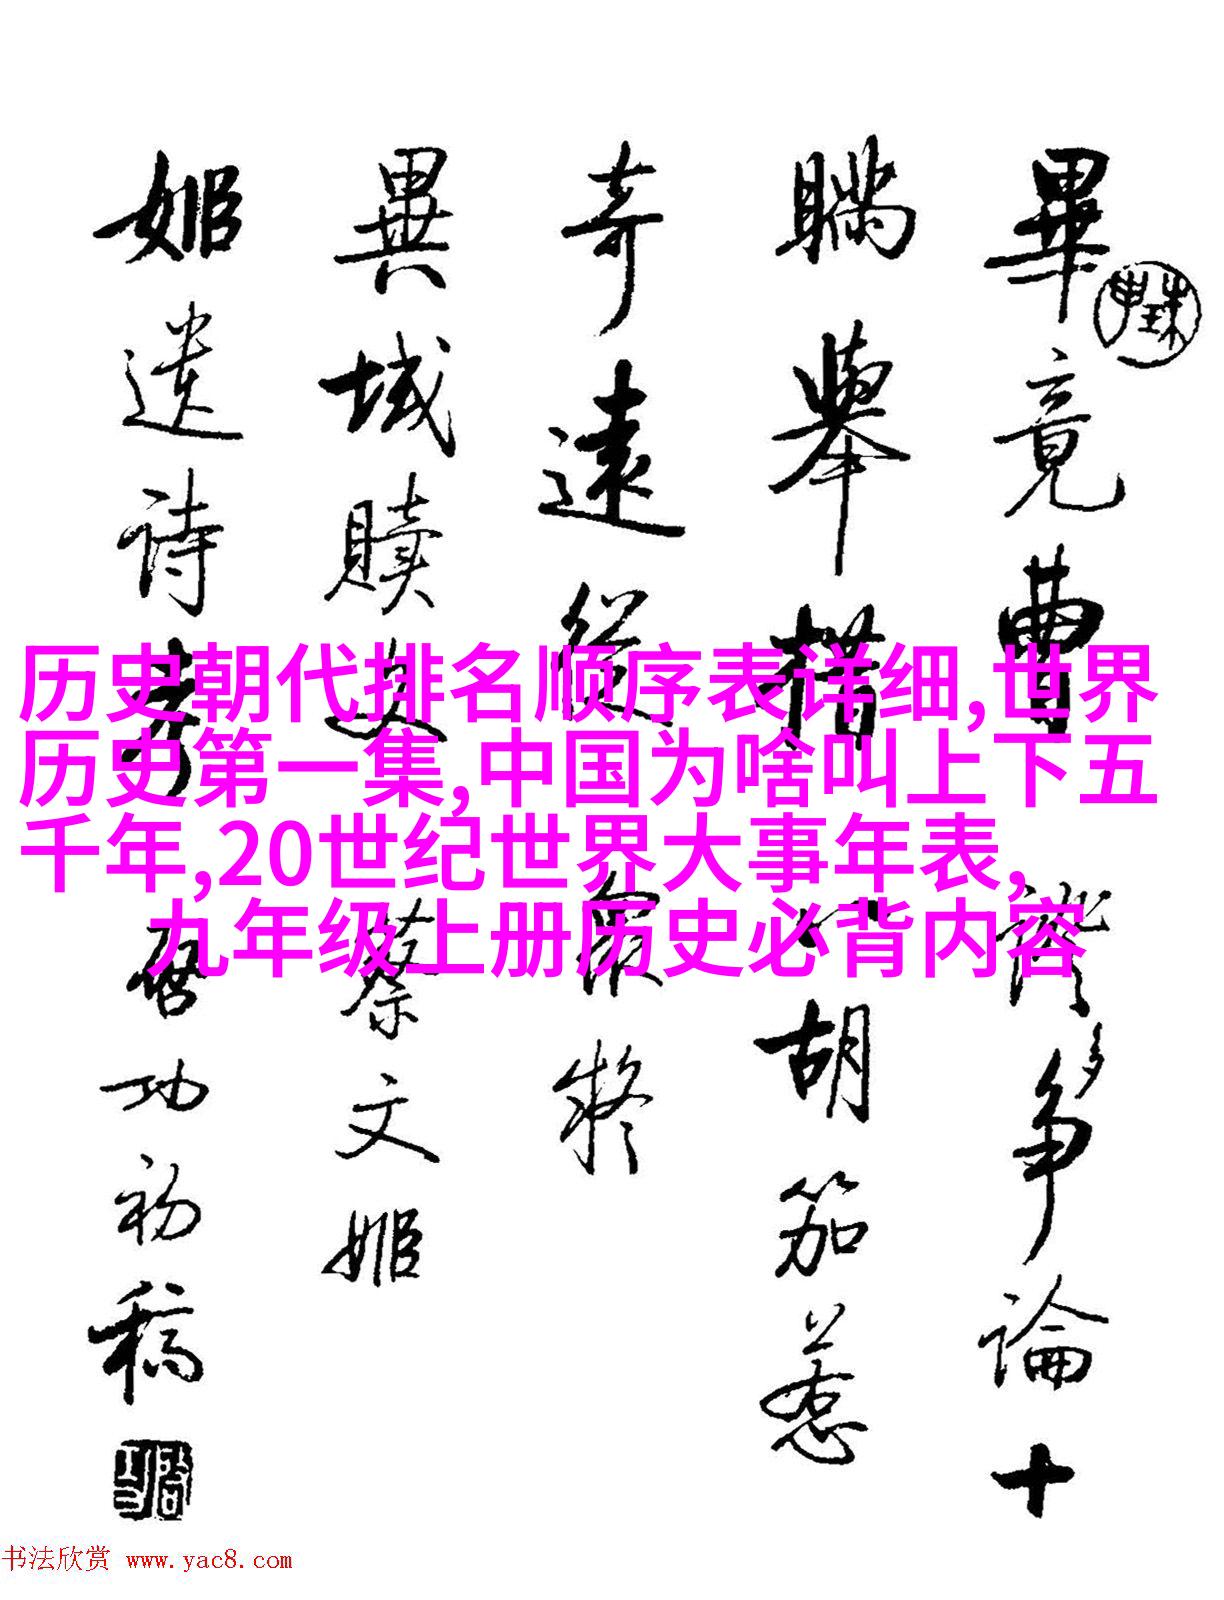 畢竟曹爭論十
瞞舉措胡笳
奇遠從
異域贖文蔡文姬
姬遺詩啓功初稿
历史朝代排名顺序表详细,世界
历史第一集,中国为啥叫上下五
千年,20世纪世界大事年表,
九年级上册历史必背内容
书法欣赏 www.yac8.com